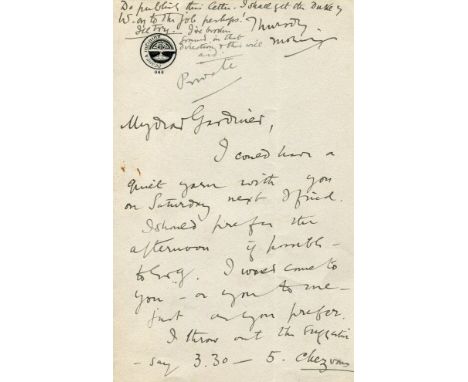 Do publish this letter. I shall get the Duke of
W. on to the job perhaps! Thursday
I'll try. I've broken morning
ground in that
direction & this will
aid.
Private
My dear Gardiner,
I could have a
quiet yarn with you
on Saturday next I find.
I should prefer the
afternoon if possible –
I would come to
you – or you to me –
just as you prefer.
I throw out the suggestion
– say 3.30 – 5. Chez vous